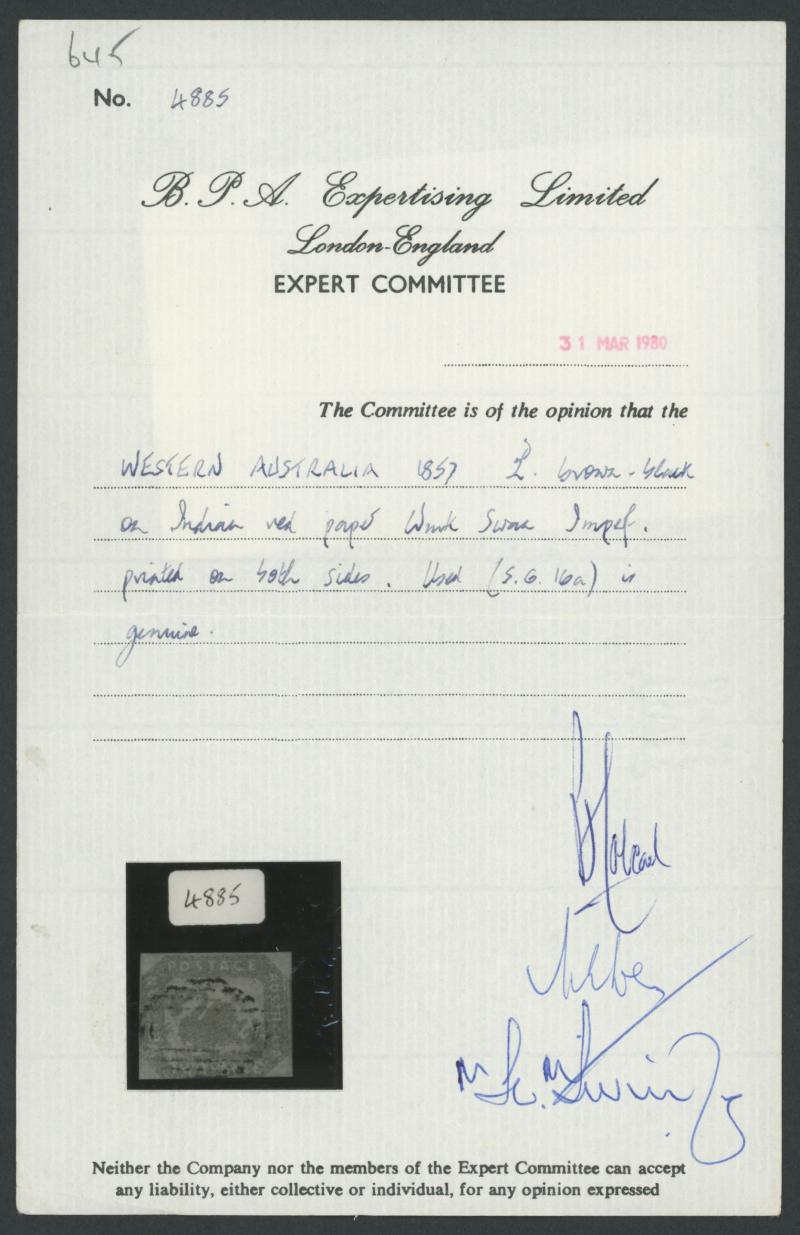 645
No. 4885
B. P. A. Expertising Limited
London-England
EXPERT COMMITTEE
31 MAR 1980
The Committee is of the opinion that the
WESTERN AUSTRALIA 1857 2d. brown-black
on Indian red paper Wmk Swan Imperf.
printed on both sides. Used (S.G. 16a) is
genuine.
4885
POSTAGE
Neither the Company nor the members of the Expert Committee can accept
any liability, either collective or individual, for any opinion expressed